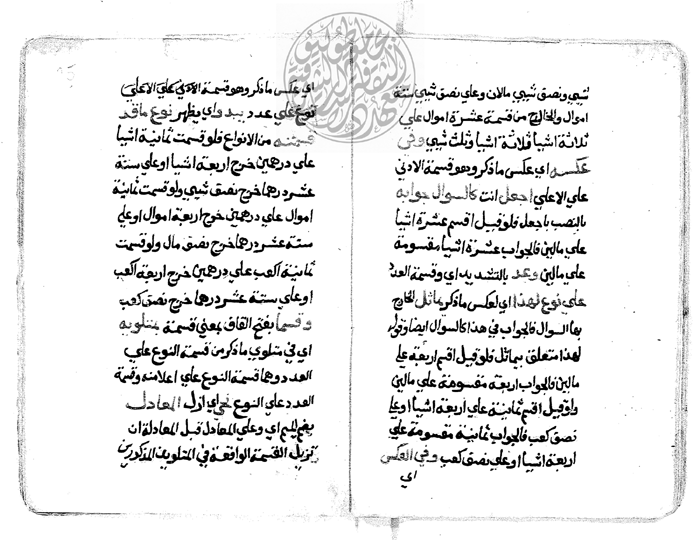 شيي ونصق شيي مالان وعلي نصق شيي ستة
اموال والخارج من قسمة عشرة اموال علي
ثلاثة اشيا ثلاثة اشيا وثلث شيي وفي
عكسه اي عكس ماذكر وهو قسمة الادني
علي الاعلي اجعل انت كالسوال جوابه
بالنصب باجعل فلو قيل اقسم عشرة اشيا
علي مالين فالجواب عشرة اشيا مقسومة
علي مالين وعد بالتشديد اي وقسمة العدد
علي نوع لهذا اي لعكس ماذكر يماثل الخارج
بها السوال فالجواب في هذا كالسوال ايضا وقوله
لهذا متعلق بيماثل فلو قيل اقسم اربعة علي
مالين فالجواب اربعة مقسومة علي مالين
ولو قيل اقسم ثمانية علي اربعة اشيا او علي
نصق كعب فالجواب ثمانية مقسومة علي
اربعة اشيا او علي نصق كعب وفي العكس
اي
اي عكس ماذكر وهو قسمة الادني علي الاعلي
نوع علي عدد يبد واي يظهر نوع ماقد
قسمته من الانواع فلو قسمت ثمانية اشيا
علي درهمين خرج اربعة اشيا او علي ستة
عشر درهما خرج نصق شيي ولو قسمت ثمانية
اموال علي درهمين خرج اربعة اموال او علي
ستة عشر درهما خرج نصق مال ولو قسمت
ثمانية اكعب علي درهمين خرج اربعة اكعب
او علي ستة عشر درهما خرج نصق كعب
وقسما بفتح القاف بمعني قسمة متلويه
اي في متلوي ماذكر من قسمة النوع علي
العدد وهما قسمة النوع علي اعلا منه وقسمة
العدد علي النوع اي ازل المعادل
بضم الميم اي وعلي المعادل قبل المعادلة ان
تزيل القسمة الواقعة في المتلوين المذكورين